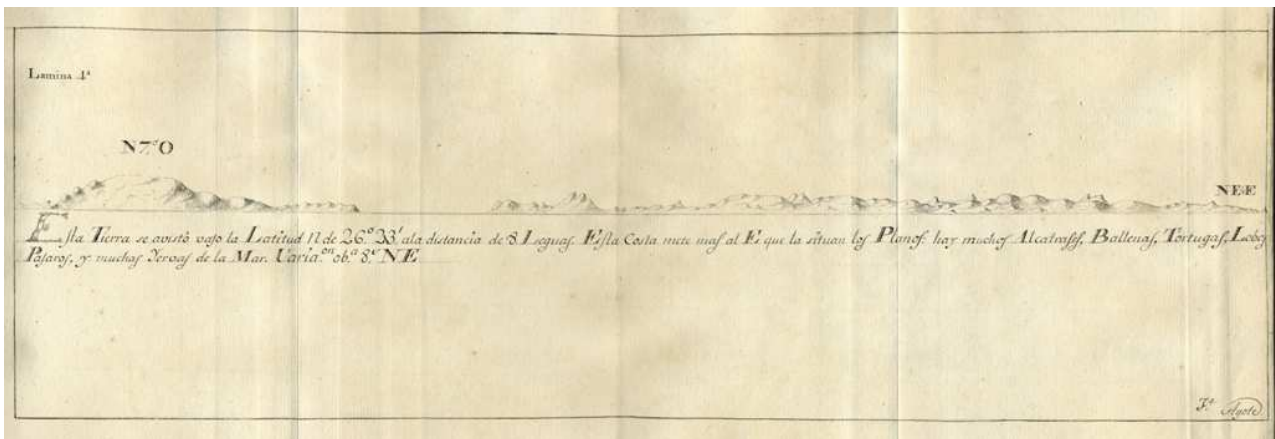 Lamina 4ª
N 7.º O
NE¼E
Esta Tierra se avistò vajo la Latitud N de 26.º 33' ala distancia de 8 Leguas. Esta Costa mete mas al E que la situan los Planos. hay muchos Alcatrases, Ballenas, Tortugas, Lobos
Pajaros, y muchas Yervas de la Mar. Varia.on ob.ª 8.º NE
F.º Agote